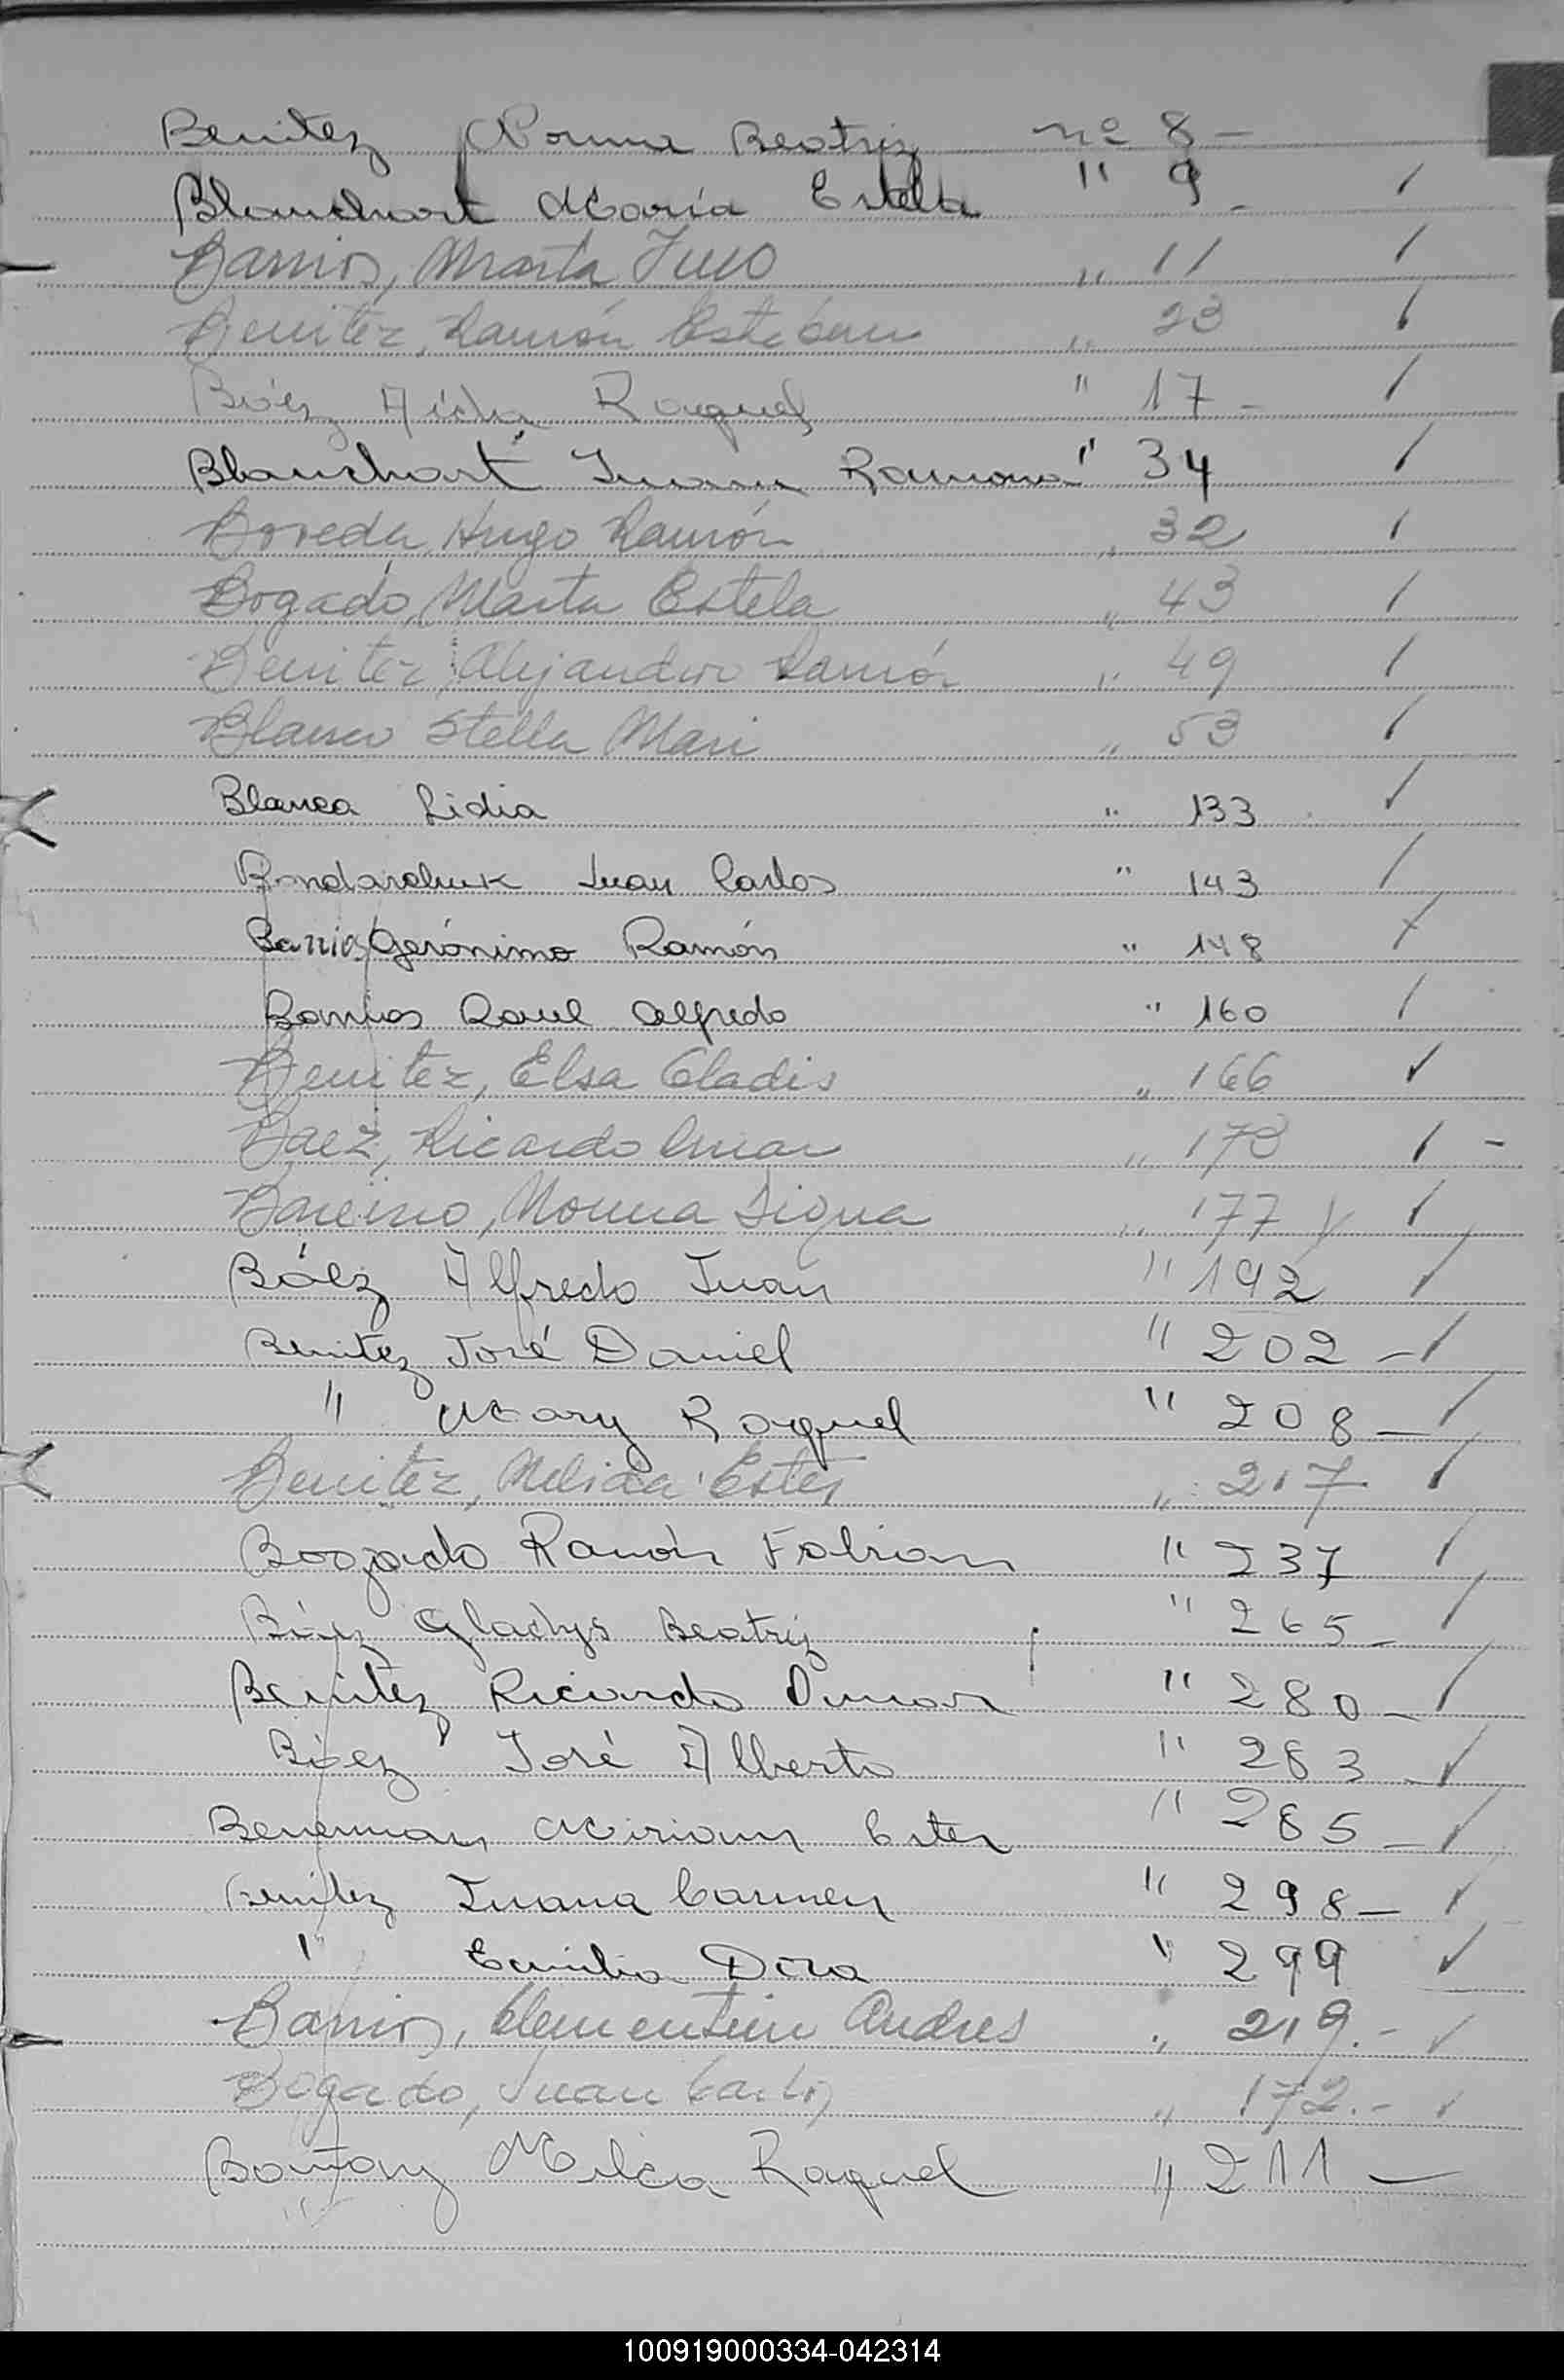 Benitez Norma Beatriz nº 8 -
Blanchart María Estela " 9 -
Barrios, Marta Ines " 11
Benitez, Ramón Esteban " 23
Báez Aída Raquel " 17 -
Blanchart Juana Ramona " 34
Boveda, Hugo Ramón " 32
Bogado, Marta Estela " 43
Benitez, Alejandro Ramón " 49
Blanco Stella Mari " 53
Blanca Lidia " 133
Bondarchuk Juan Carlos " 143
Barrios Gerónimo Ramón " 148
Barrios Raul Alfredo " 160
Benitez, Elsa Gladis " 166
Baez, Ricardo Omar " 178
Bareiro, Norma " 177
Báez Alfredo Juan " 192
Benitez José Daniel " 202 -
" Mary Raquel " 208 -
Benitez, Nelida Ester " 217
Bogado Ramón Fabian " 237
Báez Gladys Beatriz " 265 -
Benitez Ricardo Omar " 280 -
Báez José Alberto " 283 -
Beneman Miriam Ester " 285 -
Benitez Juana Carmen " 298 -
" Emilia Dora " 299
Barrios, Clementino Andres " 219.-
Bogado, Juan Carlos " 172.-
Milca Raquel " 211 -
100919000334-042314